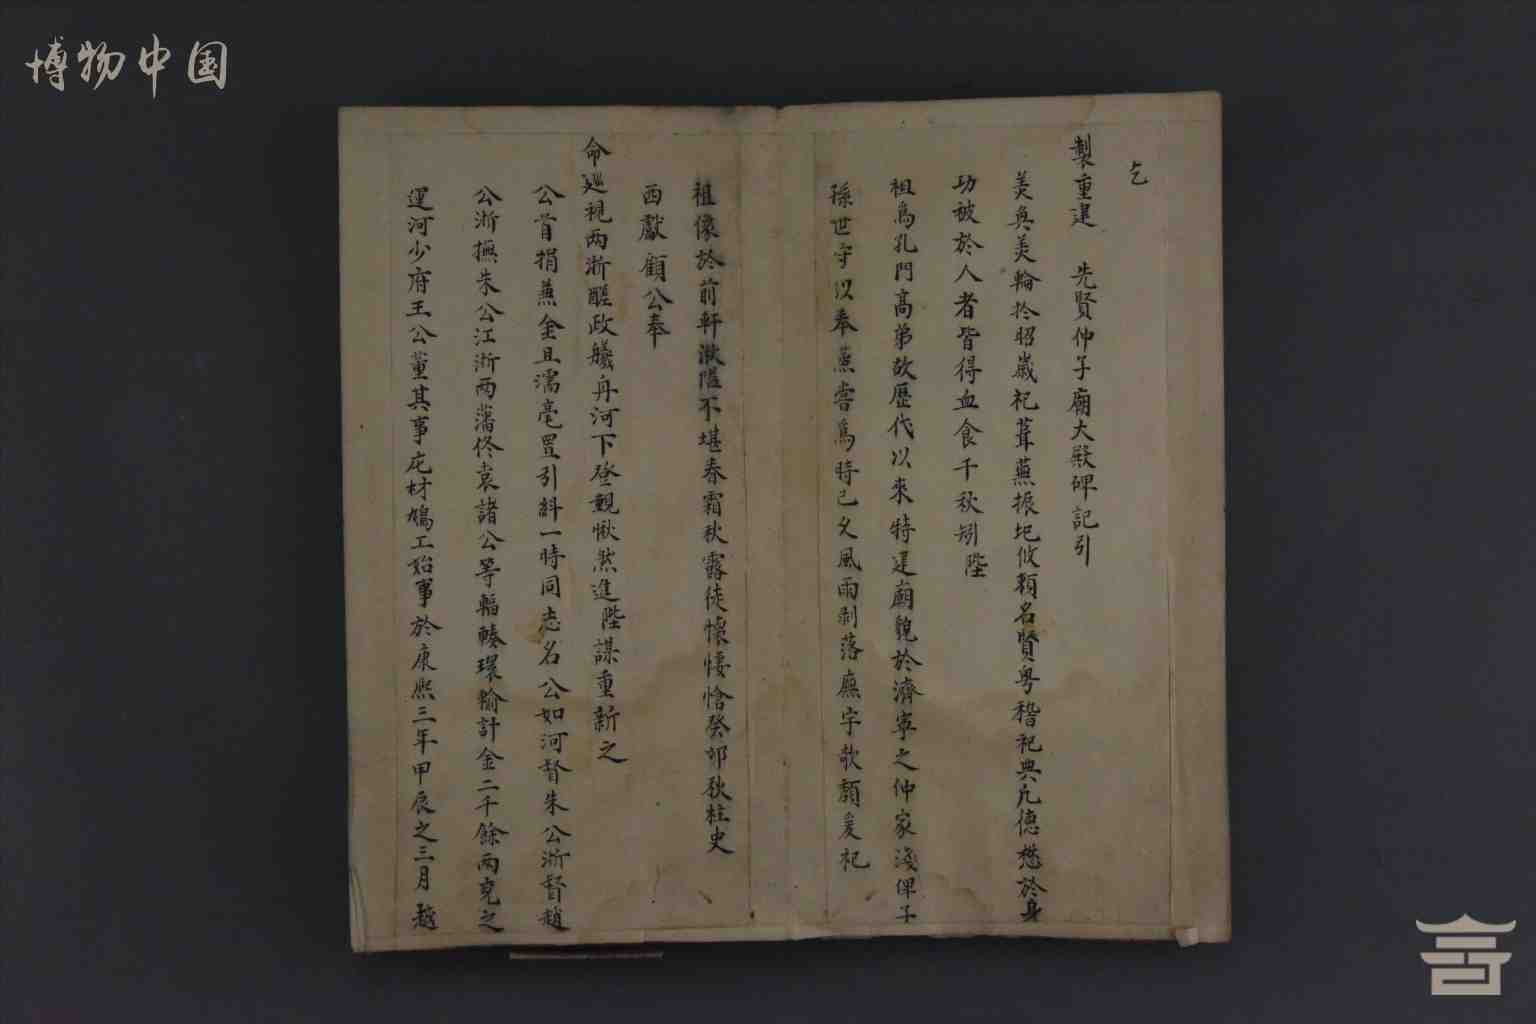 博物中国
乞
製重建　先賢仲子廟大殿碑記引
美奐美輪於昭歲祀葺蕪振圮攸賴名賢粤稽祀典凡德懋於身
功被於人者皆得血食千秋矧陛
祖爲孔門高弟故歷代以來特建廟貌於濟寧之仲家淺俾子
孫世守以奉蒸嘗爲時已久風雨剥落廡宇欹頹爰祀
祖像於前軒湫隘不堪春霜秋露徒懷悽愴癸卯秋柱史
西獻顧公奉
命廵視两浙鹺政艤舟河下登觀愀然進陛謀重新之
公首捐蒸金且濡毫置引糾一時同志名公如河督朱公浙督趙
公浙撫朱公江浙两藩佟袁諸公等輻輳環輸計金二千餘两克之
運河少府王公董其事庀材鳩工始事於康熙三年甲辰之三月越